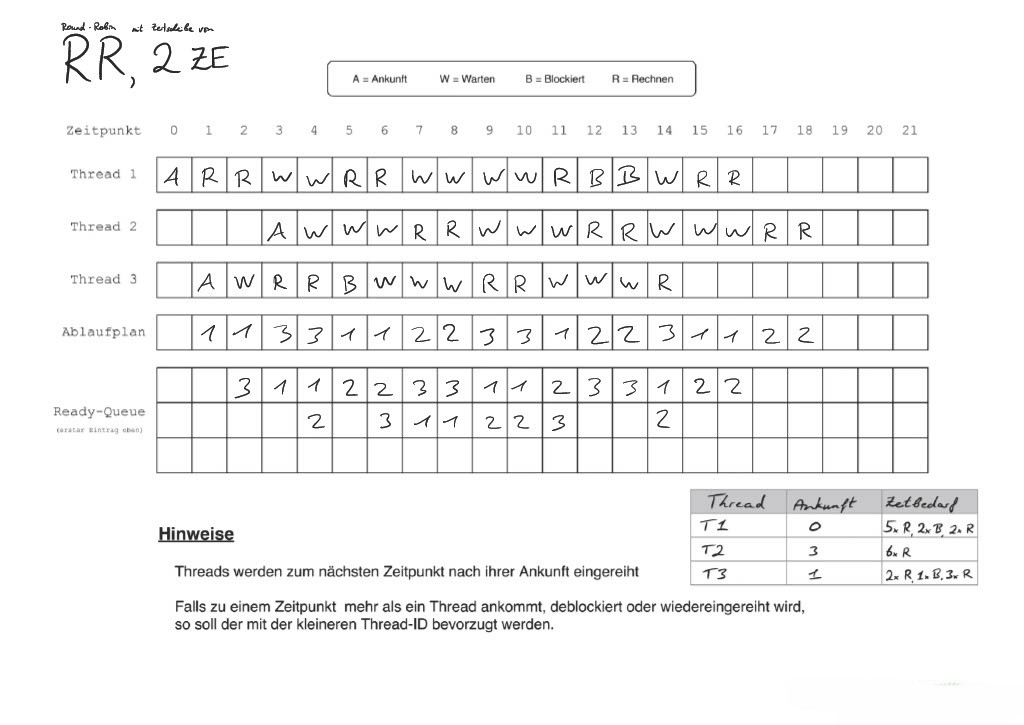 Round-Robin mit Zeitscheibe von
RR, 2 ZE
A = Ankunft W = Warten B = Blockiert R = Rechnen
Zeitpunkt 0 1 2 3 4 5 6 7 8 9 10 11 12 13 14 15 16 17 18 19 20 21
Thread 1 A R R W W R R W W W W R B B W R R
Thread 2 A W W W R R W W W R R W W W R R
Thread 3 A W R R B W W W R R W W W R
Ablaufplan 1 1 3 3 1 1 2 2 3 3 1 2 2 3 1 1 2 2
3 1 1 2 2 3 3 1 1 2 3 3 1 2 2
Ready-Queue 2 3 1 1 2 2 3 2
(erster Eintrag oben)
Thread Ankunft Zeitbedarf
T1 0 5x R, 2x B, 2x R
T2 3 6x R
T3 1 2x R, 1x B, 3x R
Hinweise
Threads werden zum nächsten Zeitpunkt nach ihrer Ankunft eingereiht
Falls zu einem Zeitpunkt mehr als ein Thread ankommt, deblockiert oder wiedereingereiht wird,
so soll der mit der kleineren Thread-ID bevorzugt werden.